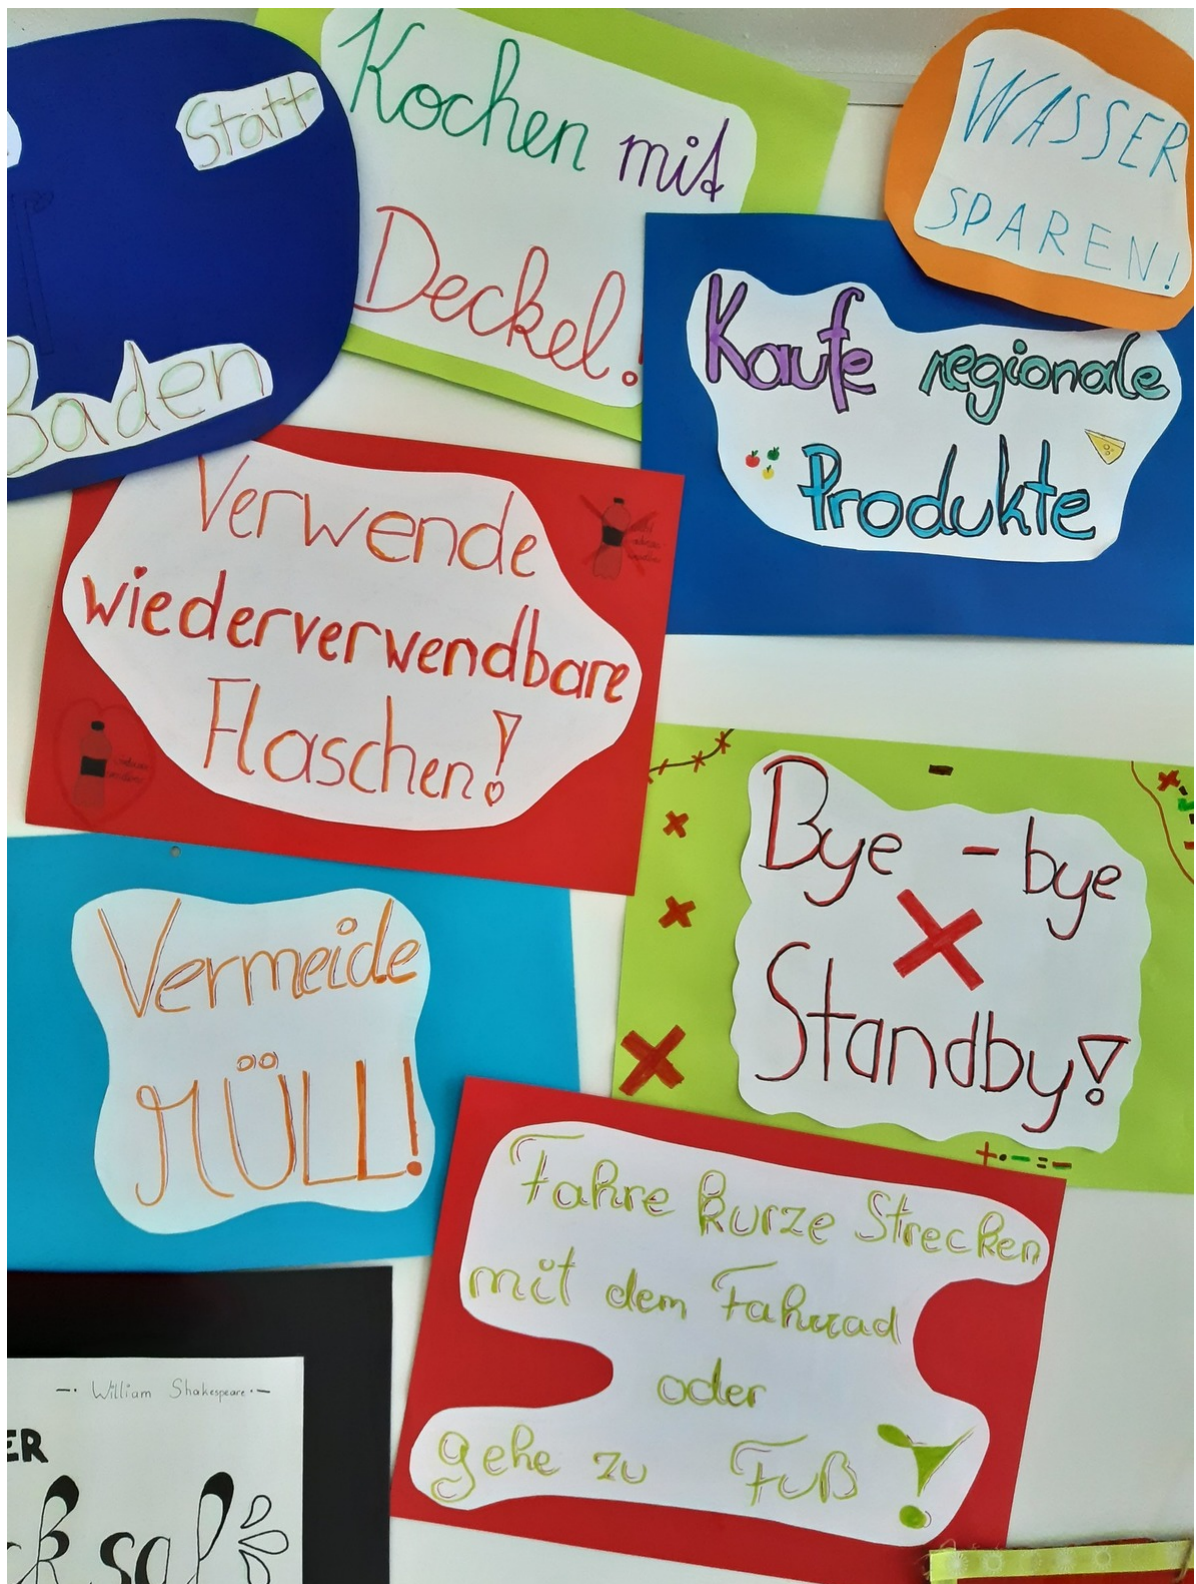 Statt
Baden
Kochen mit
Deckel!
WASSER
SPAREN!
Kaufe regionale
Produkte
Verwende
wiederverwendbare
Flaschen!
Bye - bye
Standby!
Vermeide
MÜLL!
+ · - = -
Fahre kurze Strecken
mit dem Fahrrad
oder
gehe zu Fuß!
—· William Shakespeare ·—
ER
cksal